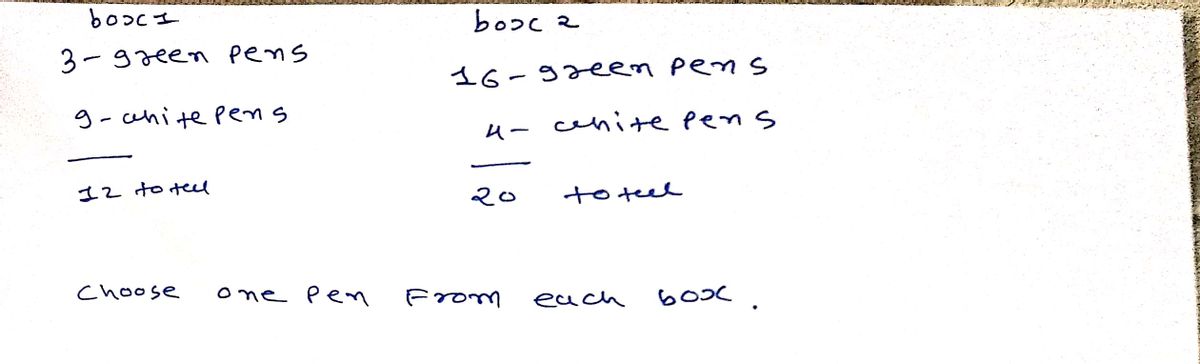 box 1
3 - green pens
9 - white pens
12 total
box 2
16 - green pens
4 - white pens
20 total
Choose one pen From each box.